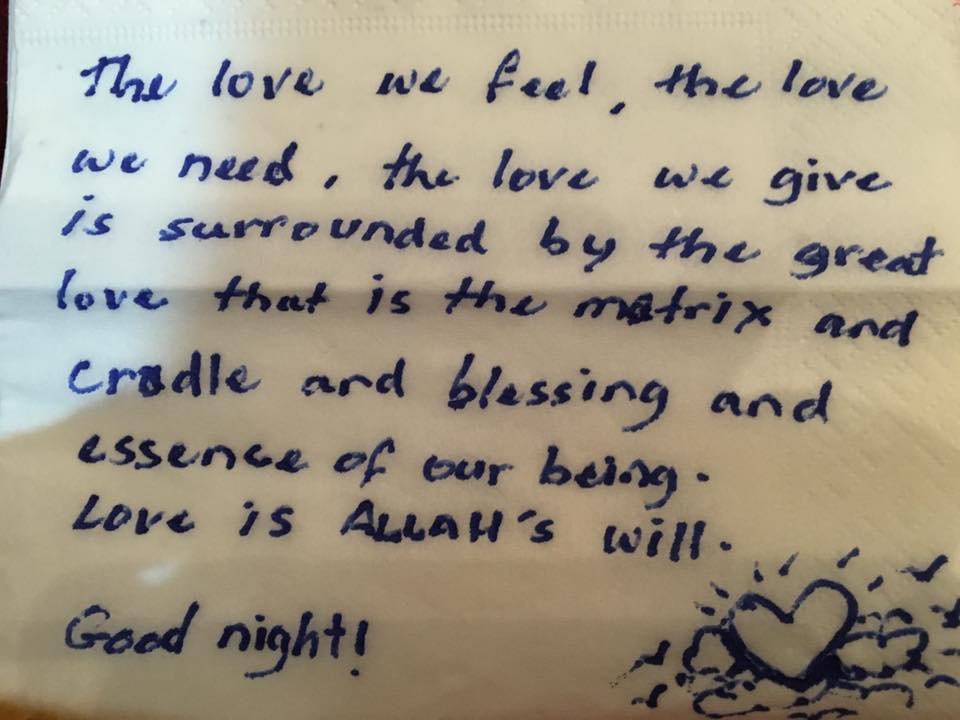 The love we feel, the love
we need, the love we give
is surrounded by the great
love that is the matrix and
cradle and blessing and
essence of our being.
Love is ALLAH's will.
Good night!